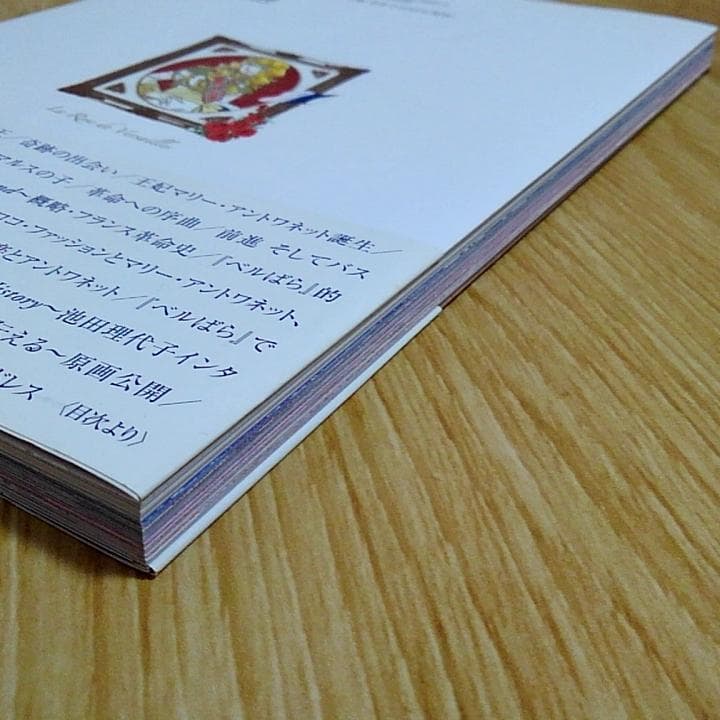 La Rose de Versailles
奇跡の出会い／王妃マリー・アントワネット誕生／
マルスの子／革命への序曲／前進 そしてバス
概略・フランス革命史／『ベルばら』的
ココ・ファッションとマリー・アントワネット、
とアントワネット／『ベルばら』で
istory〜池田理代子インタ
伝える〜原画公開／
ドレス 〈目次より〉